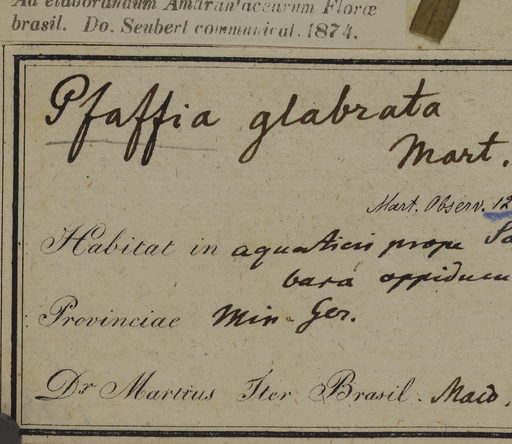 Ad elaborandum Amarantacearum Floræ
brasil. Do. Seubert communicat. 1874.
Pfaffia glabrata
Mart.
Mart. Observ. 12
Habitat in aquaticis prope Sa
bará oppidum
Provinciae Min Ger.
Dr Martius Iter Brasil. Maio.